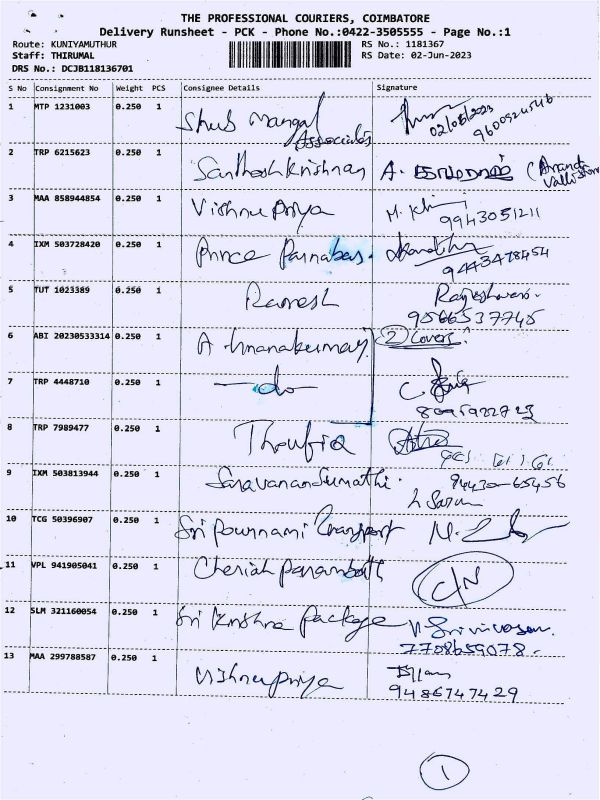 THE PROFESSIONAL COURIERS, COIMBATORE
Delivery Runsheet - PCK - Phone No.:0422-3505555 - Page No.:1
Route: KUNIYAMUTHUR RS No.: 1181367
Staff: THIRUMAL RS Date: 02-Jun-2023
DRS No.: DCJB118136701
S No Consignment No Weight PCS Consignee Details Signature
1 MTP 1231003 0.250 1 Shub Mangal
Associates 02/06/2023
2 TRP 6215623 0.250 1 Santhosh Krishnan A.
3 MAA 858944854 0.250 1 Vishnu Priya M.
9943051211
4 IXM 503728420 0.250 1 Prince Parnabas.
9443478454
5 TUT 1023389 0.250 1 Ramesh Rajeshwari.
9566537745
6 ABI 20230533314 0.250 1 2 Covers
7 TRP 4448710 0.250 1 do
8 TRP 7989477 0.250 1 Thoufiq
9 IXM 503813944 0.250 1 Saravanan Sumathi. 94430-65456
10 TCG 50396907 0.250 1 Sri Pournami Transport
11 VPL 941905041 0.250 1 Cheriah Parambath C/N
12 SLM 321160054 0.250 1 Sri Krishna Package V. Srinivasan.
7708659078.
13 MAA 299788587 0.250 1 Vishnu Priya
9486747429
1